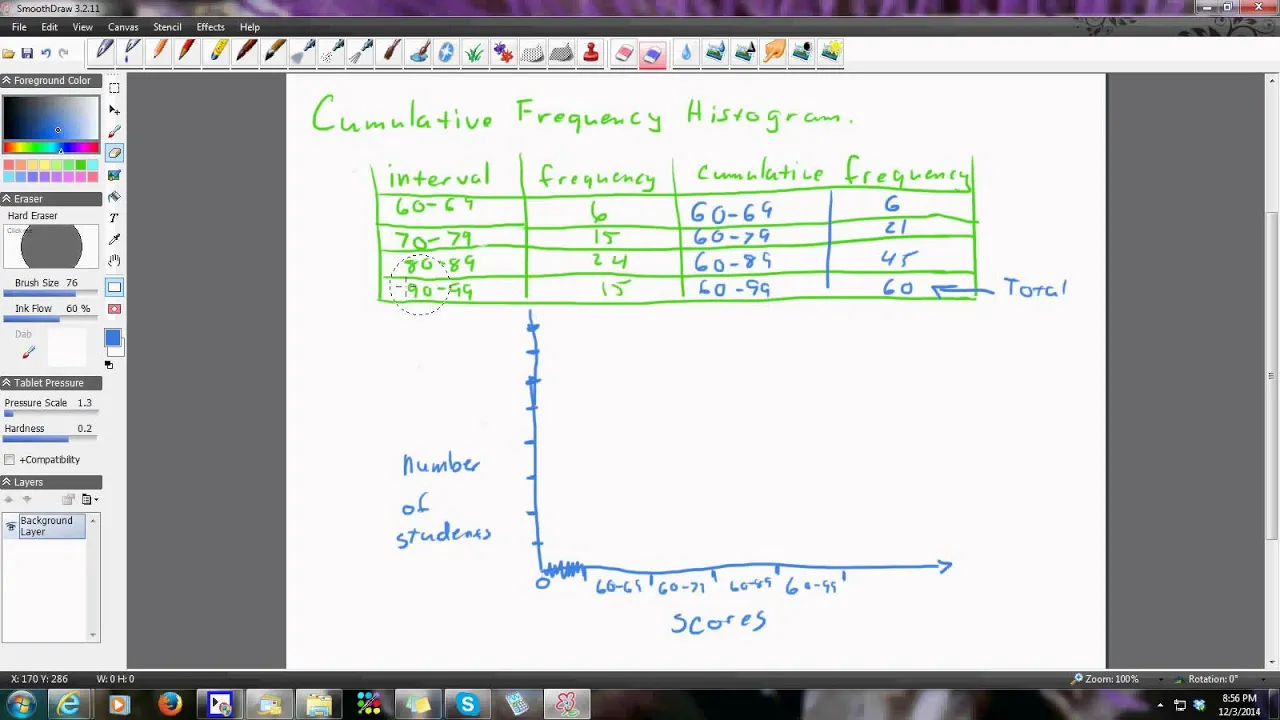 SmoothDraw 3.2.11
File Edit View Canvas Stencil Effects Help
Foreground Color
Eraser
Hard Eraser
Brush Size 76
Ink Flow 60 %
Dab
Tablet Pressure
Pressure Scale 1.3
Hardness 0.2
+Compatibility
Layers
Background
Layer
Cumulative Frequency Histogram.
interval frequency cumulative frequency
60-69 6 60-69 6
70-79 15 60-79 21
80-89 24 60-89 45
90-99 15 60-99 60 Total
Number
of
students
0 60-69 60-79 60-89 60-99
Scores
X: 170 Y: 286 W: 0 H: 0 Zoom: 100% Rotation: 0°
8:56 PM
12/3/2014